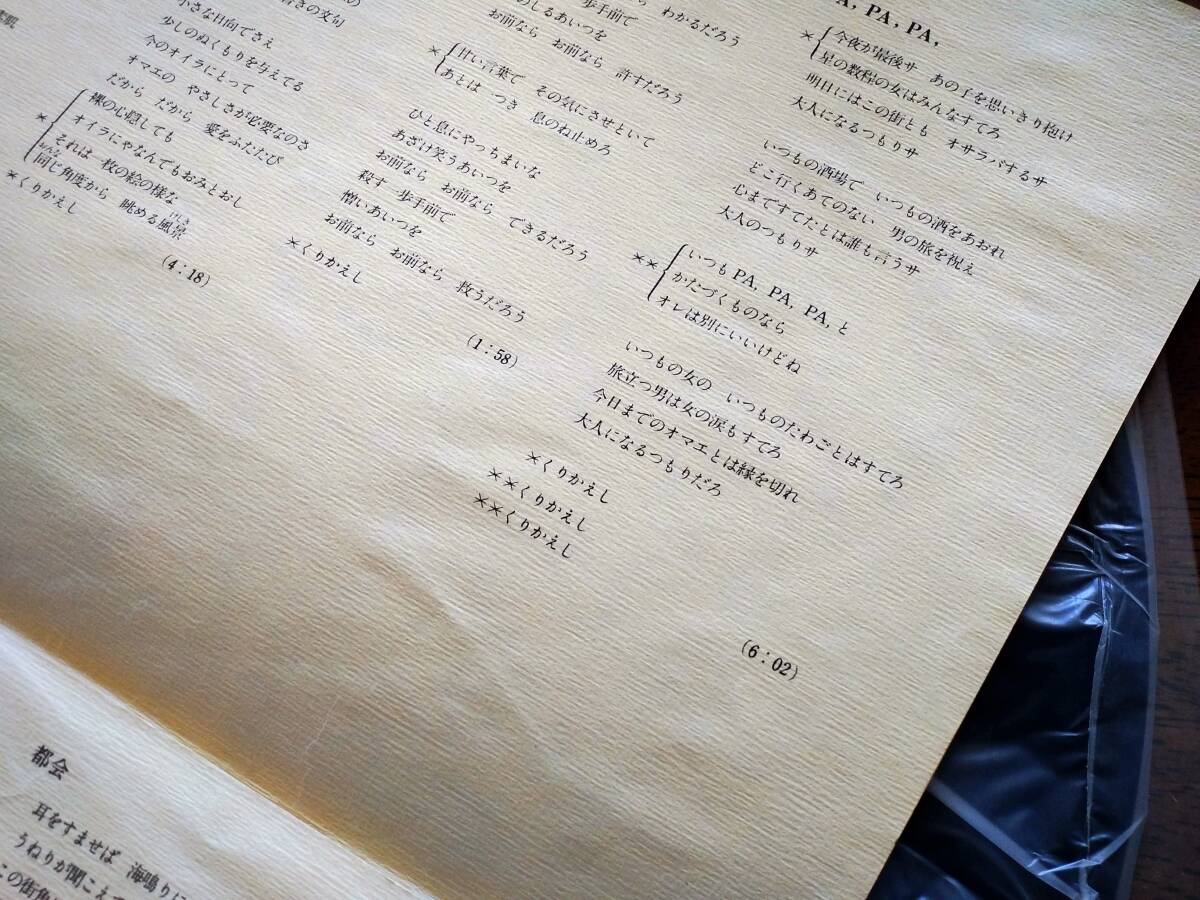 書きの文句
小さな日向でさえ
少しのぬくもりを与えてる
今のオイラにとって
オマエの やさしさが必要なのさ
だから だから 愛をふたたび
* 裸の心隠しても
オイラにゃなんでもおみとおし
それは 一枚の絵の様な
同じ角度から 眺める風景
*くりかえし
(4:18)
わかるだろう
歩手前で
のしるあいつを
お前なら お前なら 許すだろう
* 甘い言葉で その気にさせといて
あとは一つき 息のね止めろ
ひと息にやっちまいな
あざけ笑うあいつを
お前なら お前なら できるだろう
殺す一歩手前で
憎いあいつを
お前なら お前なら 救うだろう
*くりかえし
(1:58)
A, PA, PA,
* 今夜が最後サ あの子を思いきり抱け
星の数程の女はみんなすてろ
明日にはこの街とも オサラバするサ
大人になるつもりサ
いつもの酒場で いつもの酒をあおれ
どこ行くあてのない 男の旅を祝え
心まですてたとは誰も言うサ
大人のつもりサ
** いつもPA, PA, PA, と
かたづくものなら
オレは別にいいけどね
いつもの女の いつものたわごとはすてろ
旅立つ男は女の涙もすてろ
今日までのオマエとは縁を切れ
大人になるつもりだろ
*くりかえし
**くりかえし
**くりかえし
(6:02)
都会
耳をすませば 海鳴りに
うねりが聞こえて
この街角